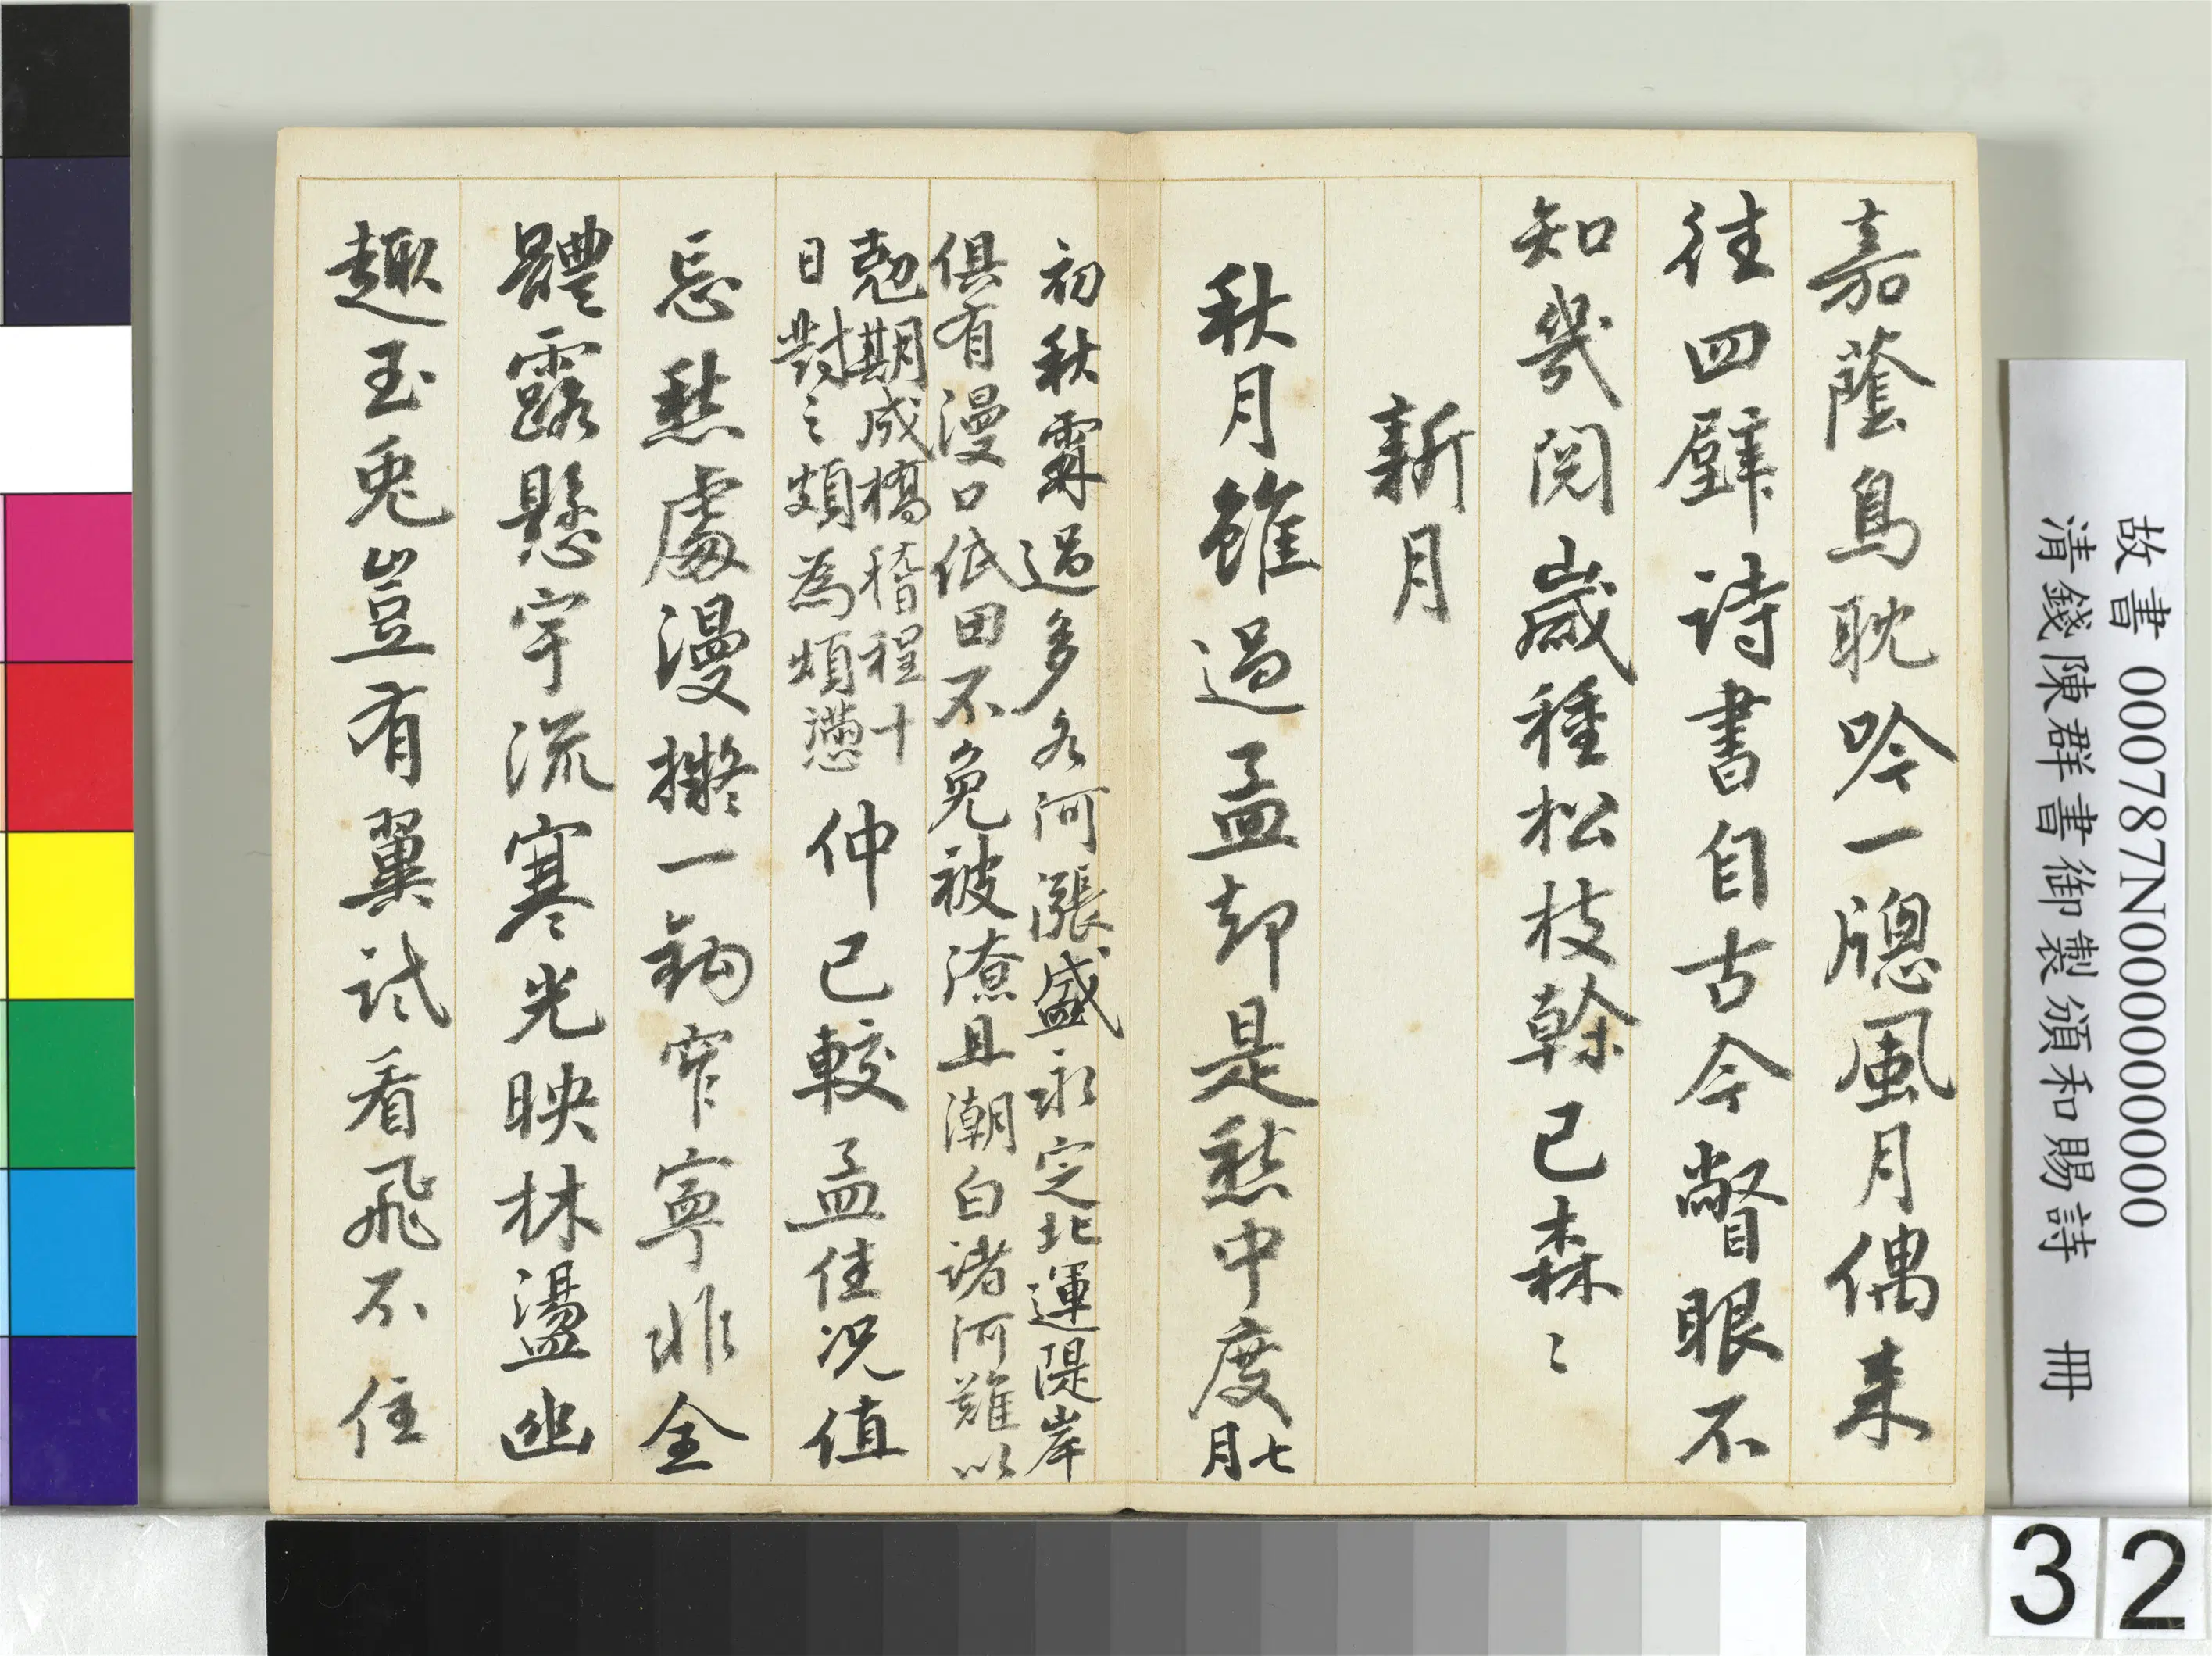 嘉蔭鳥耽吟一牕風月偶来
往四壁诗書自古今瞥眼不
知幾閱歲種松枝榦已森〻
新月
秋月雖過孟却是愁中度七
月
初秋霖過多各河漲盛永定北運隄岸
俱有漫口低田不免被潦且潮白諸河難以
尅期成橋稽程十
日對之頗為煩懣
仲已較孟佳况值
忘愁處漫擬一鉤窄寧非全
體露懸宇流寒光映林盪幽
趣玉兎豈有翼試看飛不住
故書 000787N000000000
清錢陳群書御製頒和賜詩 冊
32